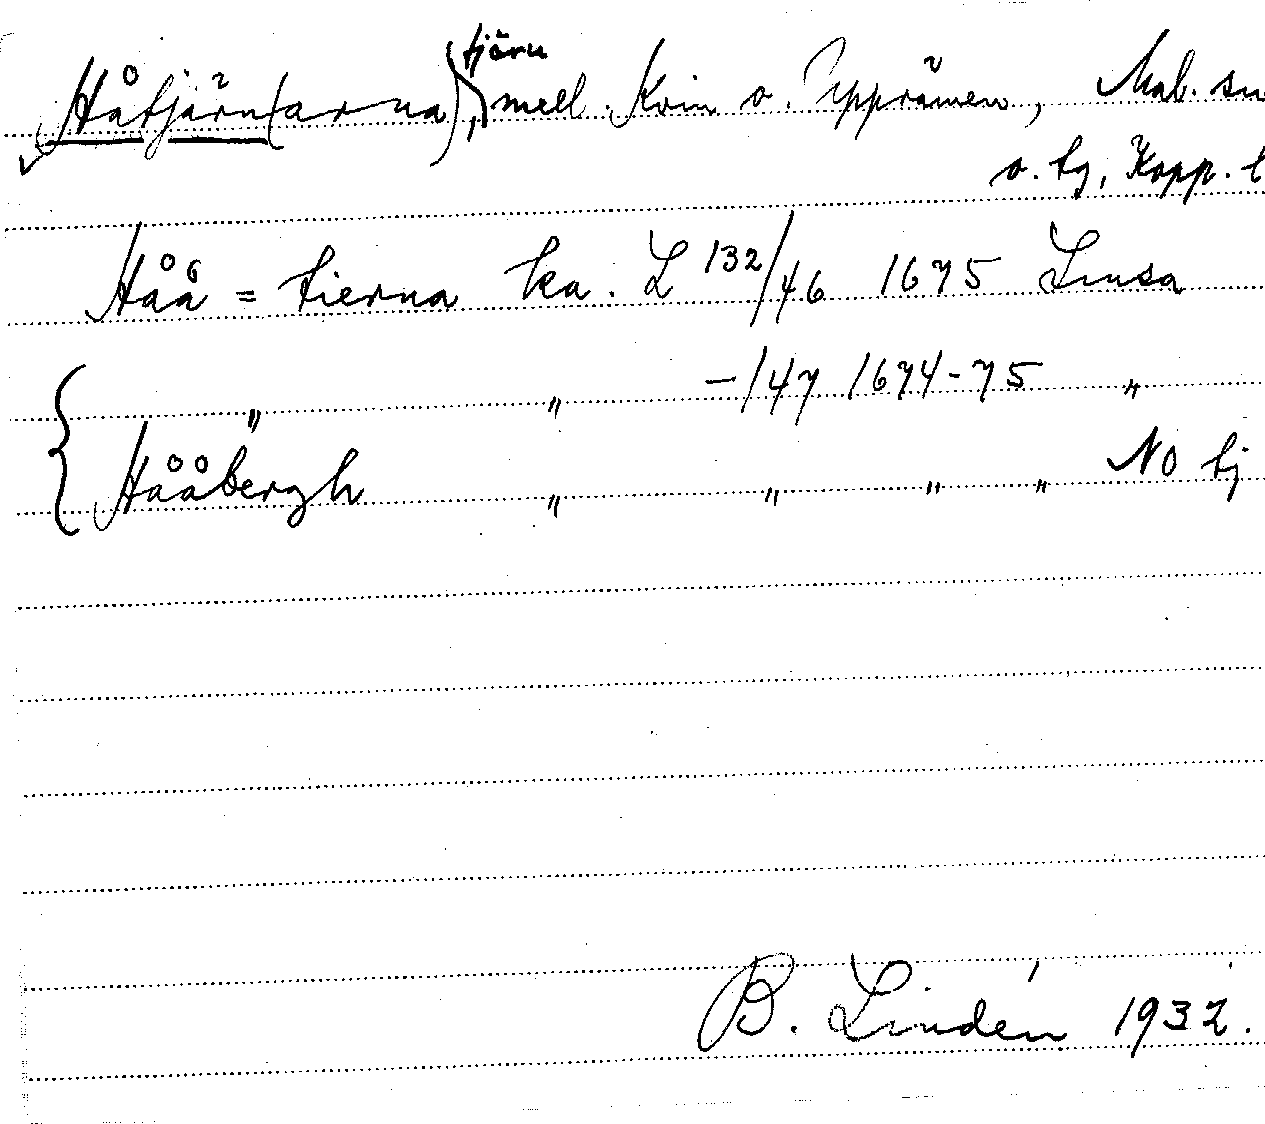 Håtjärn(arna), tjärn mell. Kvin o. Uppråmen, Mal. sn
o. tg, Kopp. l
Håå = tierna ka. L 132/46 1675 Linsa
" " -/47 1674-75 "
Hååbergh " " " " NO tj
B. Lindén 1932.